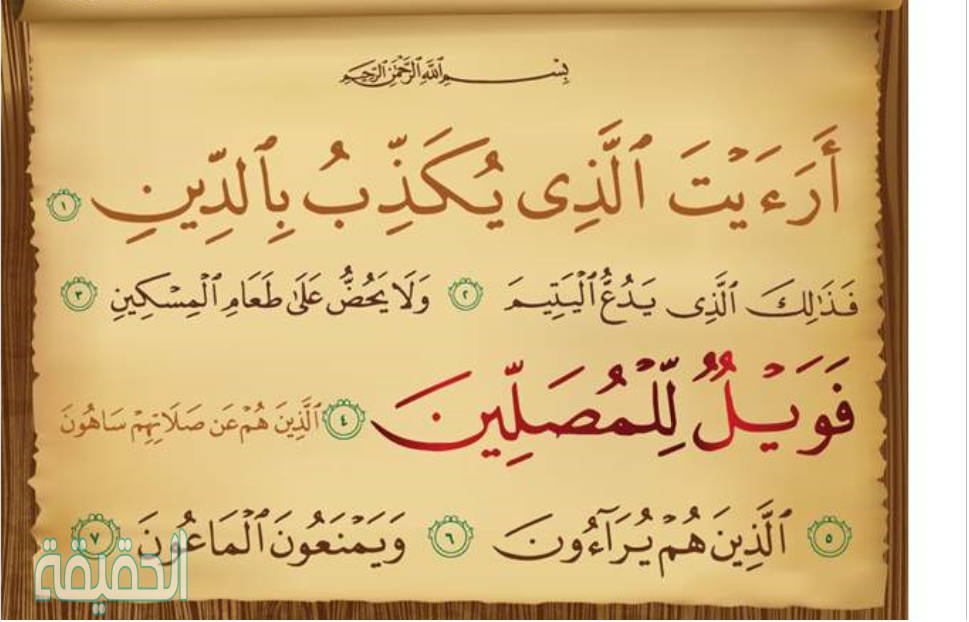 بِسْمِ اللَّهِ الرَّحْمَٰنِ الرَّحِيمِ
أَرَءَيْتَ ٱلَّذِى يُكَذِّبُ بِٱلدِّينِ ١
فَذَٰلِكَ ٱلَّذِى يَدُعُّ ٱلْيَتِيمَ ٢ وَلَا يَحُضُّ عَلَىٰ طَعَامِ ٱلْمِسْكِينِ ٣
فَوَيْلٌ لِّلْمُصَلِّينَ ٤ ٱلَّذِينَ هُمْ عَن صَلَاتِهِمْ سَاهُونَ
٥ ٱلَّذِينَ هُمْ يُرَآءُونَ ٦ وَيَمْنَعُونَ ٱلْمَاعُونَ ٧
الحقيقة